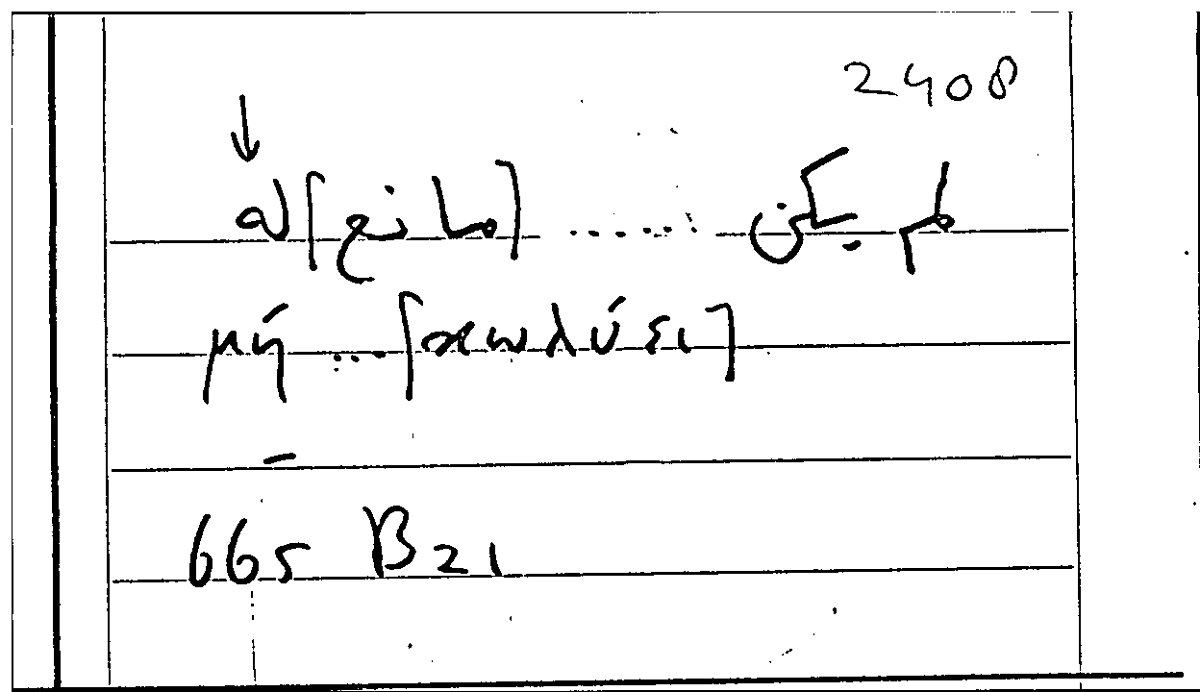 2408
↓
لم يكن ..... [مانع] له
μή ... [κωλύει]
–
665 B21